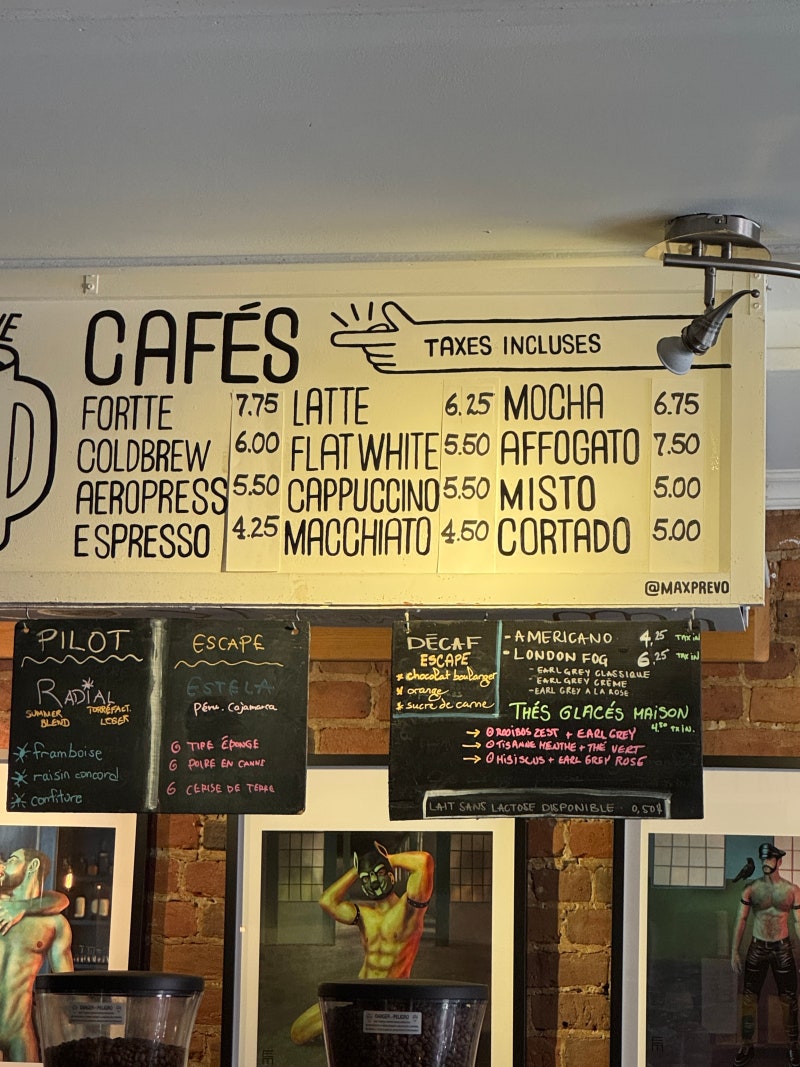 CAFÉS
TAXES INCLUSES
FORTTE 7.75
COLDBREW 6.00
AEROPRESS 5.50
ESPRESSO 4.25
LATTE 6.25
FLAT WHITE 5.50
CAPPUCCINO 5.50
MACCHIATO 4.50
MOCHA 6.75
AFFOGATO 7.50
MISTO 5.00
CORTADO 5.00
@MAXPREVO
PILOT
RADIAL
SUMMER BLEND
TORRÉFACT. LÉGER
framboise
raisin concord
confiture
ESCAPE
ESTELA
Pérou, Cajamarca
TIRE ÉPONGE
POIRE EN CANNE
CERISE DE TERRE
DÉCAF
ESCAPE
* chocolat boulanger
* orange
* sucre de canne
- AMERICANO 4,25 TAX IN
- LONDON FOG 6,25 TAX IN
- EARL GREY CLASSIQUE
- EARL GREY CRÈME
- EARL GREY A LA ROSE
THÉS GLACÉS MAISON
→ ROOIBOS ZEST + EARL GREY
→ TISANNE MENTHE + THÉ VERT
→ HIBISCUS + EARL GREY ROSE
LAIT SANS LACTOSE DISPONIBLE · 0,50$